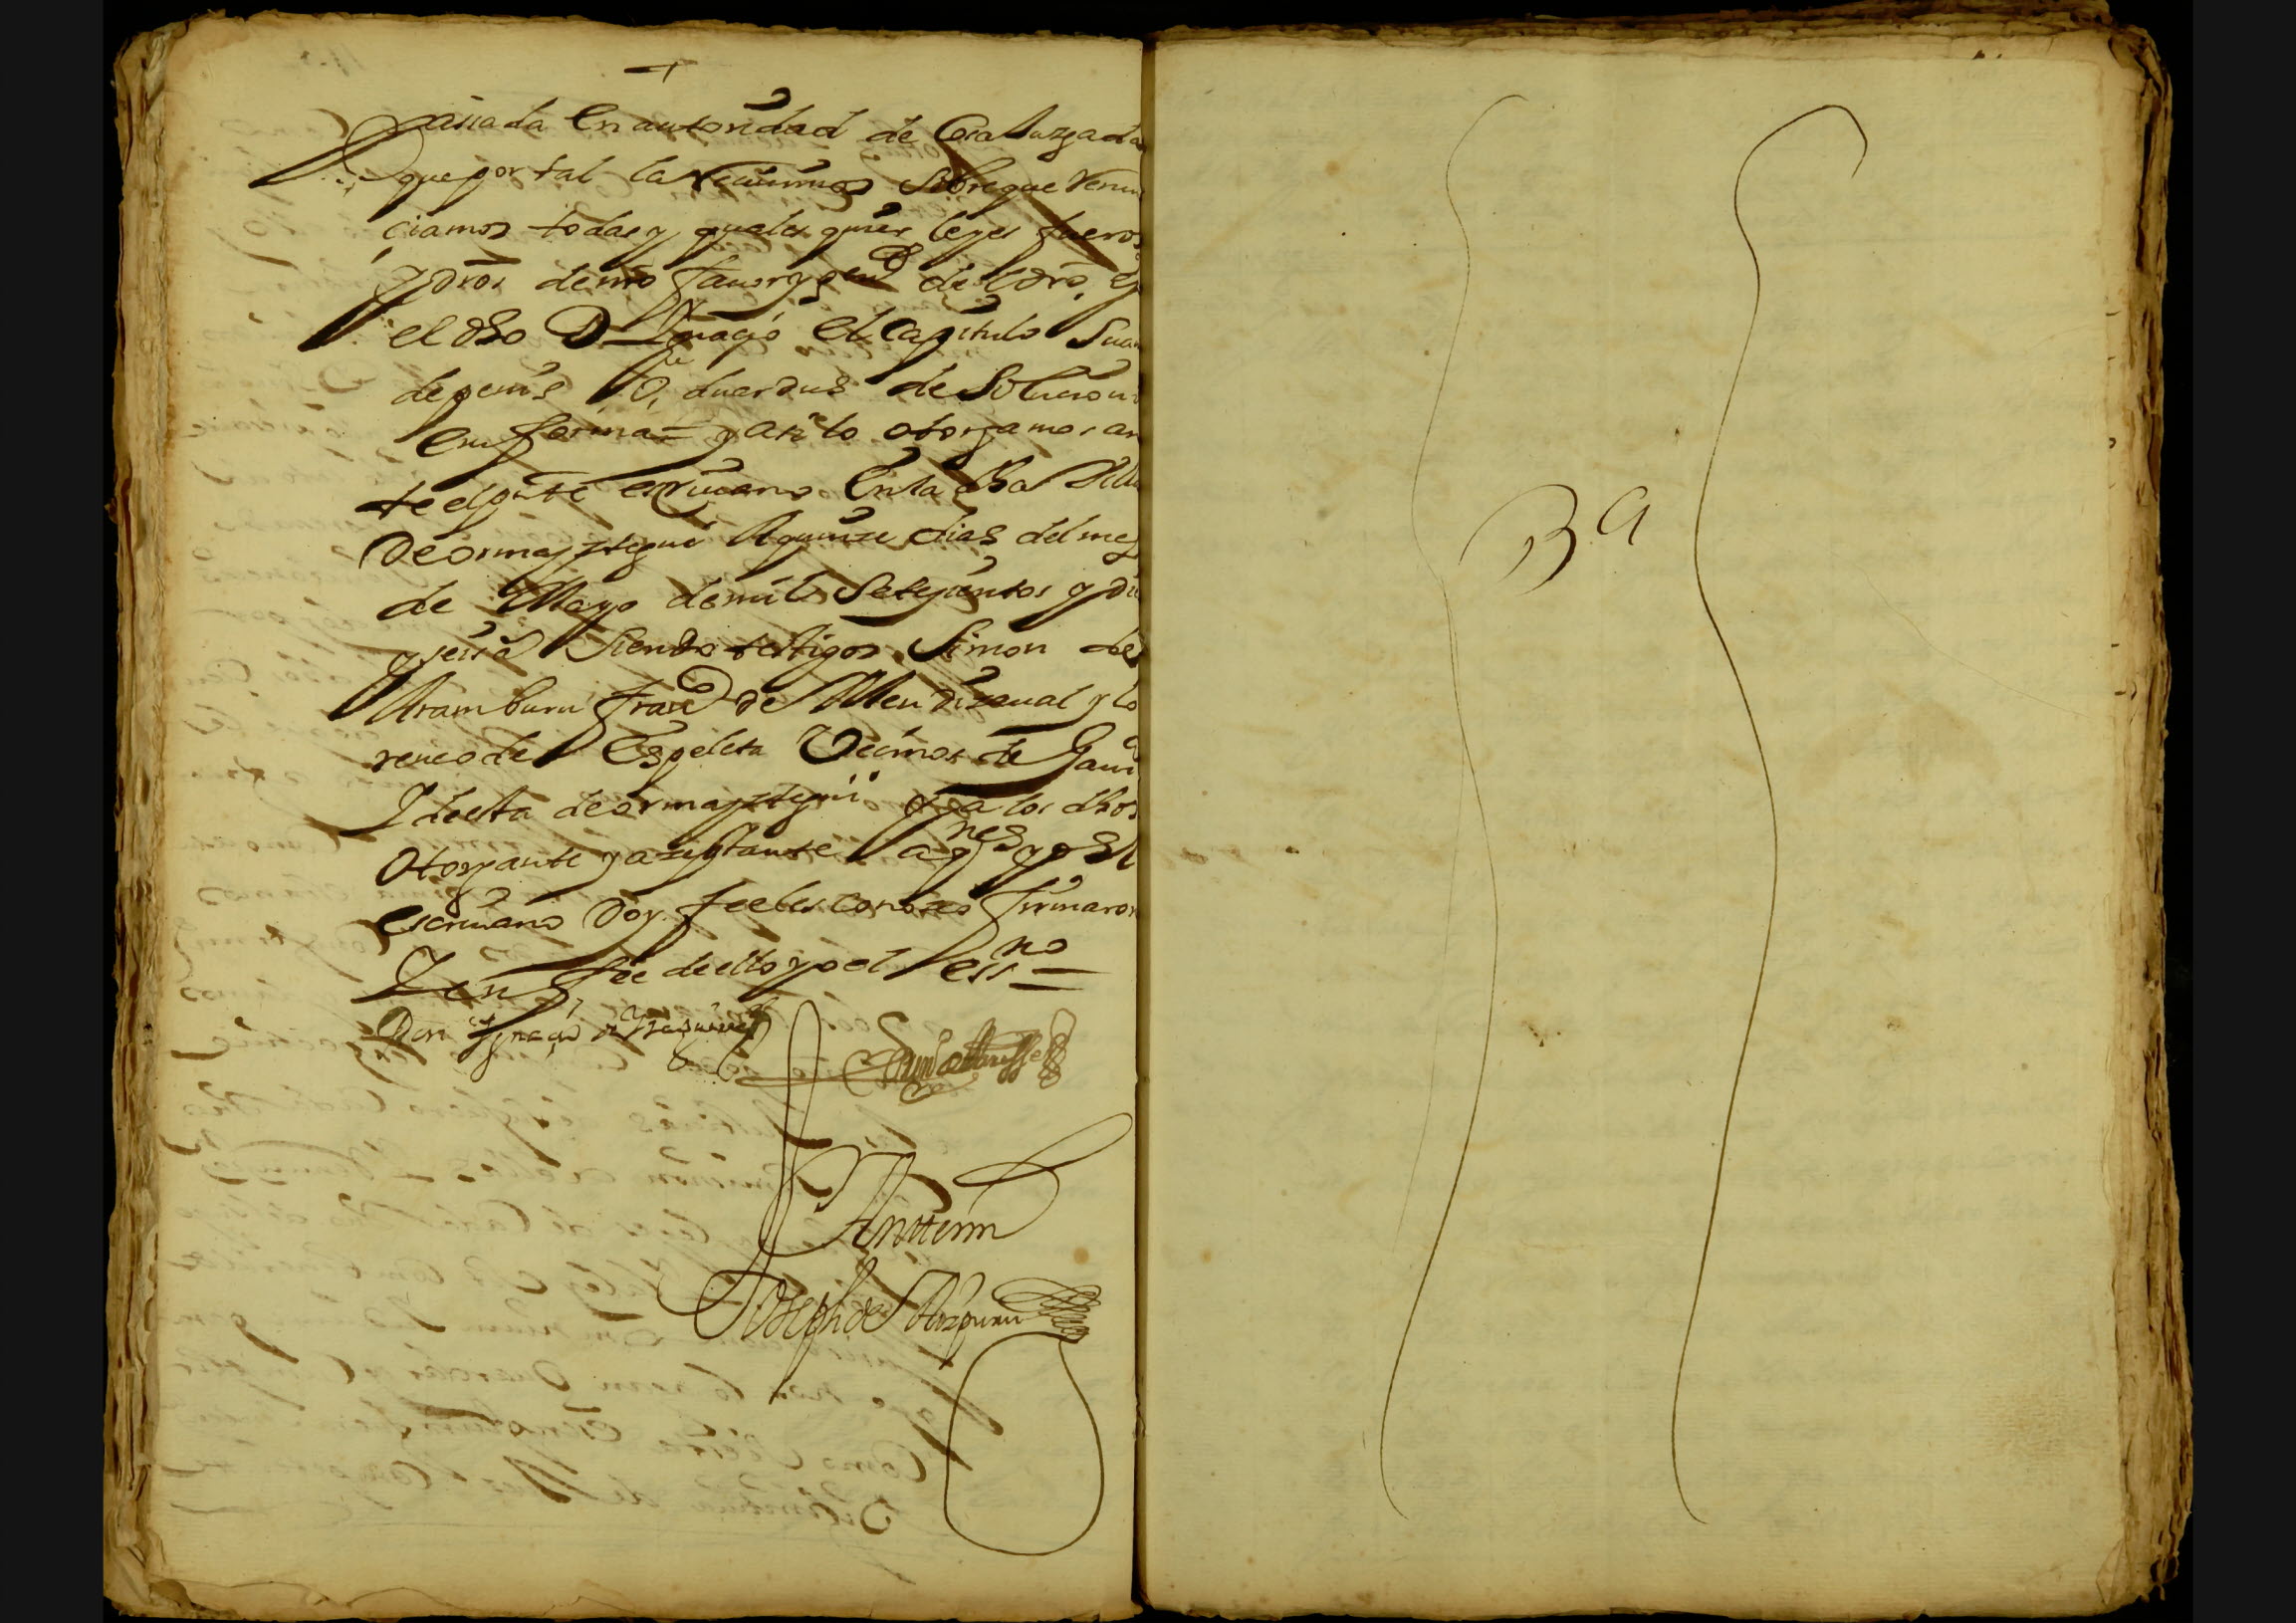 +
Passada En autoridad de Cosa Juzgada
que por tal la recivimos Sobre que Renun
ciamos todas y quales quier leyes fueros
y dros de nro favor y gen de el dro, y
el dho Dn Ygnaçio el Capitulo Suan
de penis O, duardus de Soluçioni
en forma = y assi lo otorgamos an
te el pnte escrivano En la dha Villa
De ormayztegui A quinze dias del mes
de Mayo de mil Seteçientos y die
y seis Siendo testigos Simon de
Aramburu franco de Mendizaual y Lo
renço de Espeleta Vecinos de Gaui
Y de esta de ormayztegui y a los dhos
Otorgante y azeptante a qnes yo El
escrivano Doy fee les conozco firmaron
Y en fee de ello yo el essno =
Don Ygnaçio de
Antemi
Joseph de Aizpuru
Ba